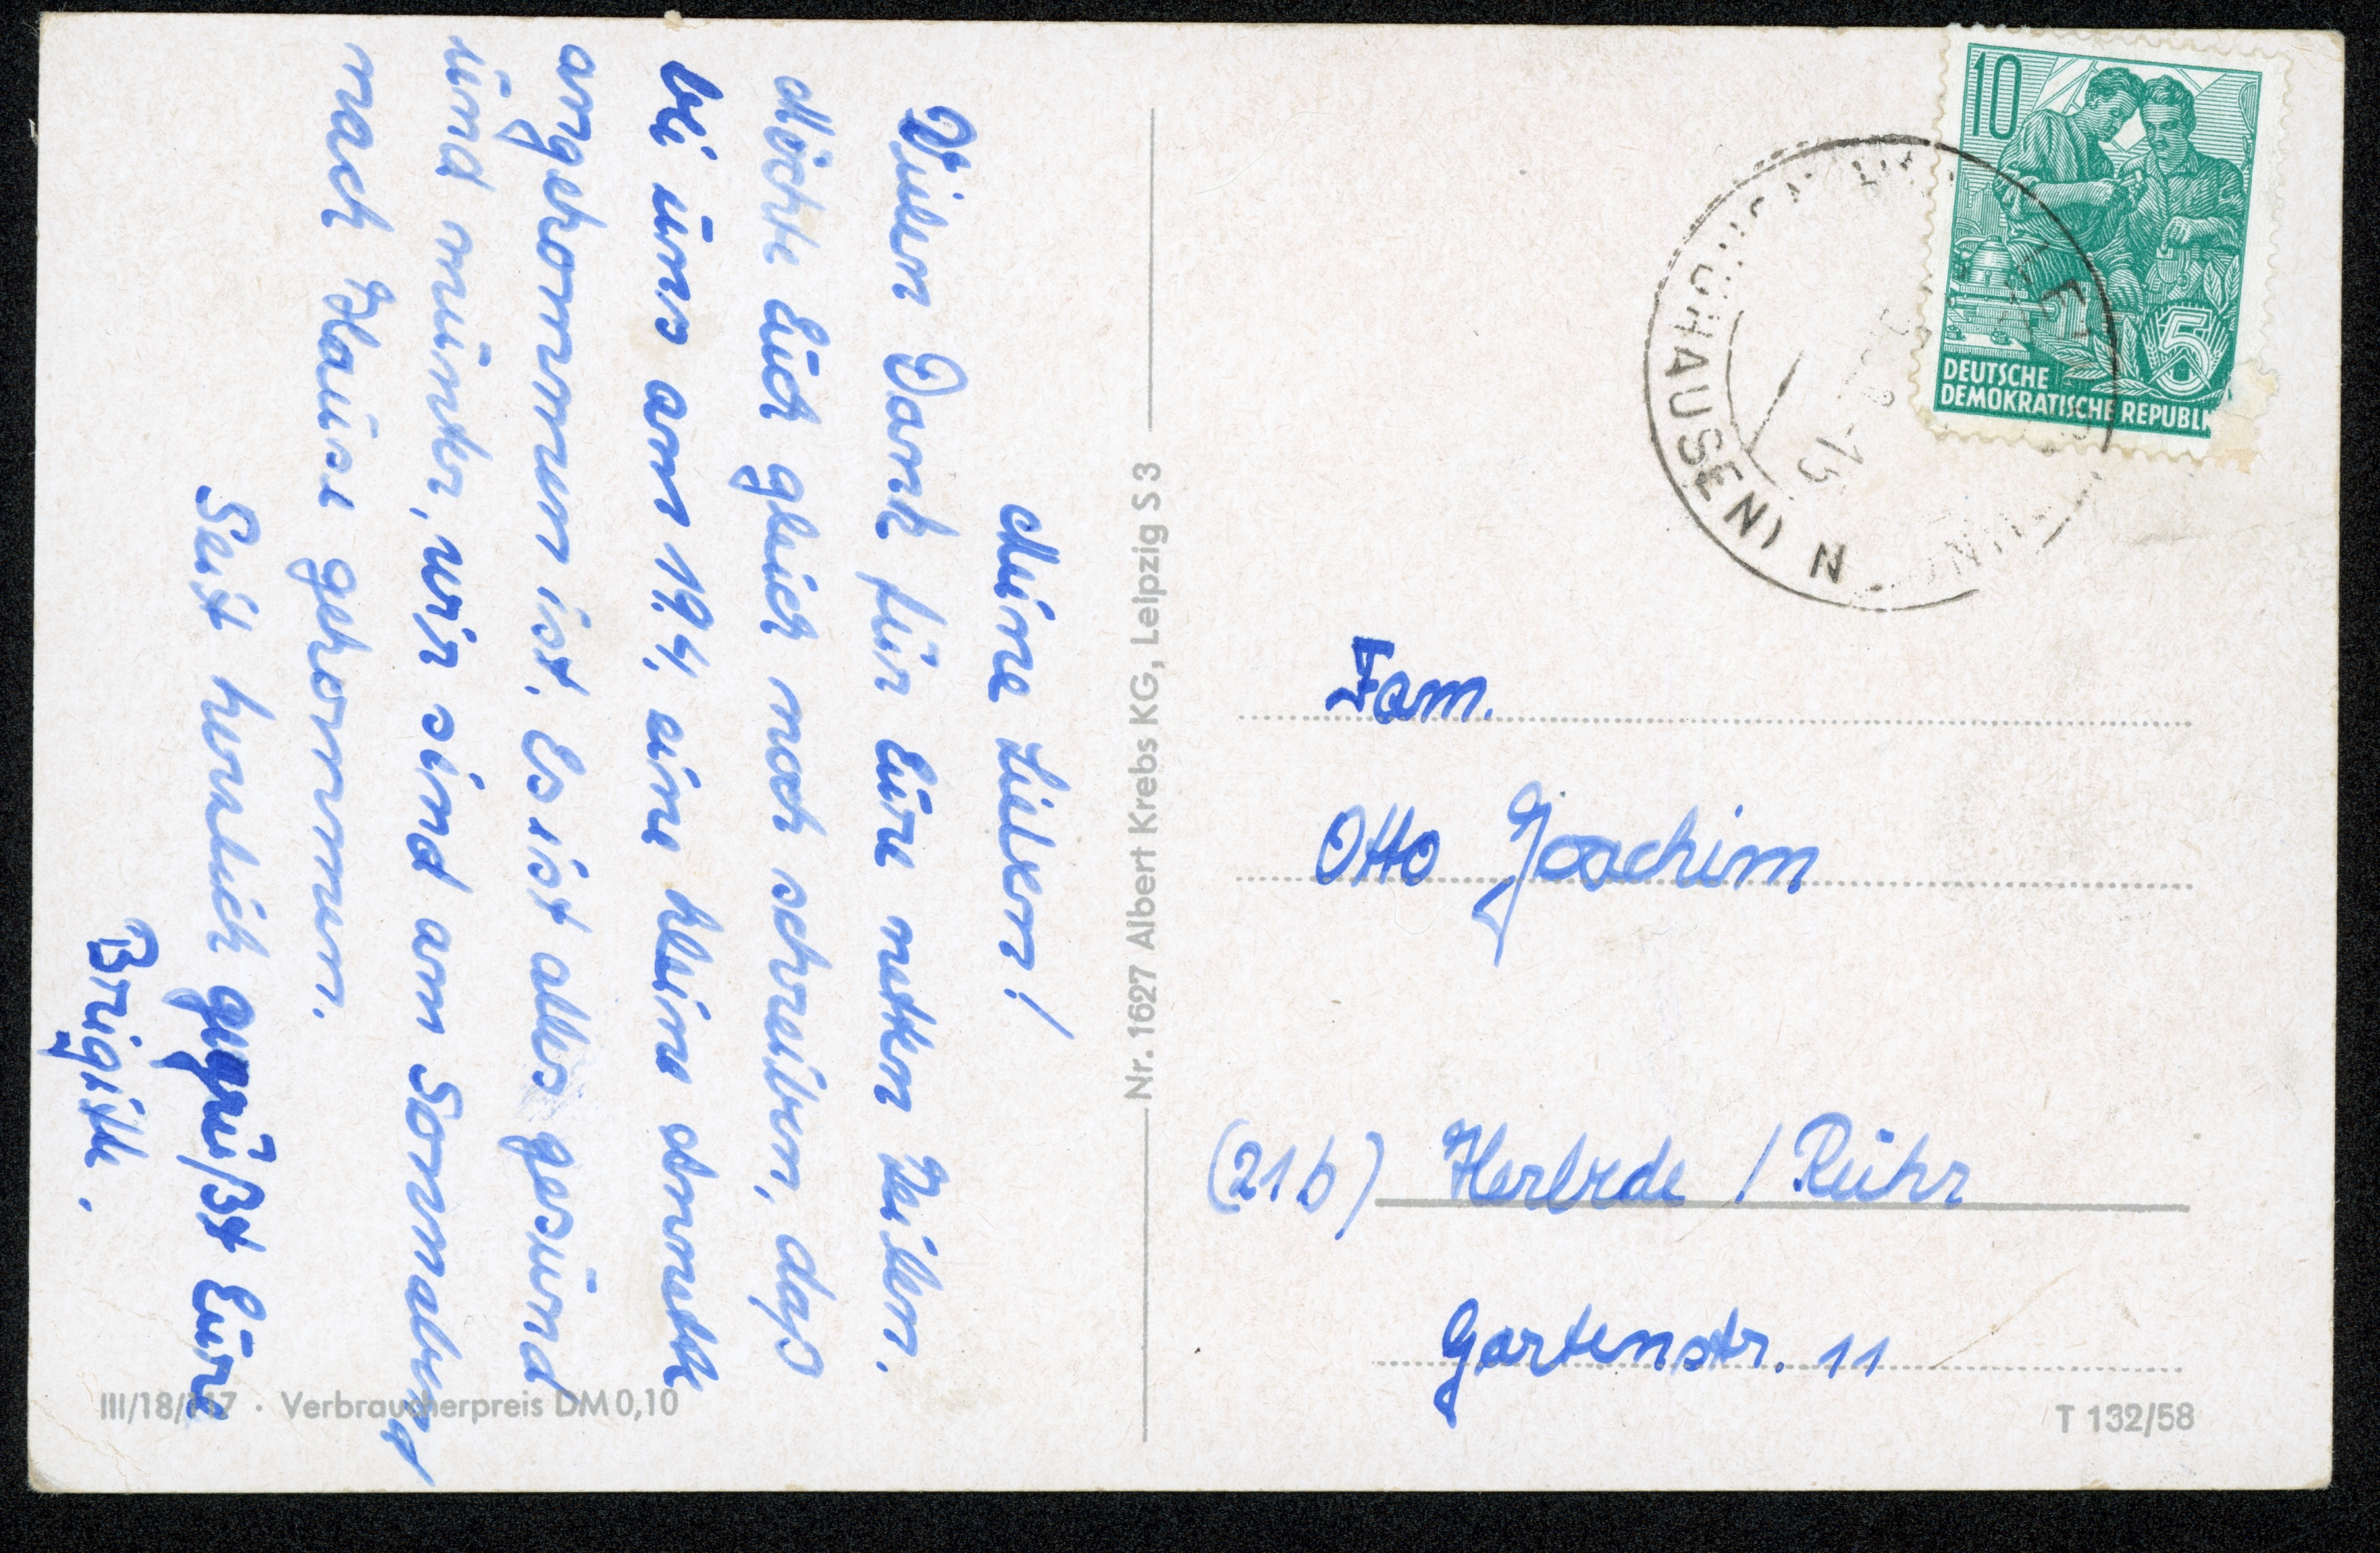 Meine Lieben!
Vielen Dank für Eure netten Zeilen.
Möchte Euch gleich noch schreiben, daß
bei uns am 19.4. eine kleine Annette
angekommen ist. Es ist alles gesund
und munter, wir sind am Sonnabend
nach Hause gekommen.
Seit herzlich gegrüßt Eure
Brigitte.
III/18/117 · Verbraucherpreis DM 0,10
Nr. 1627 Albert Krebs KG, Leipzig S 3
10
5
DEUTSCHE
DEMOKRATISCHE REPUBLIK
HAUSEN (
N
Fam.
Otto Joachim
(21b) Herbede / Ruhr
Gartenstr. 11
T 132/58